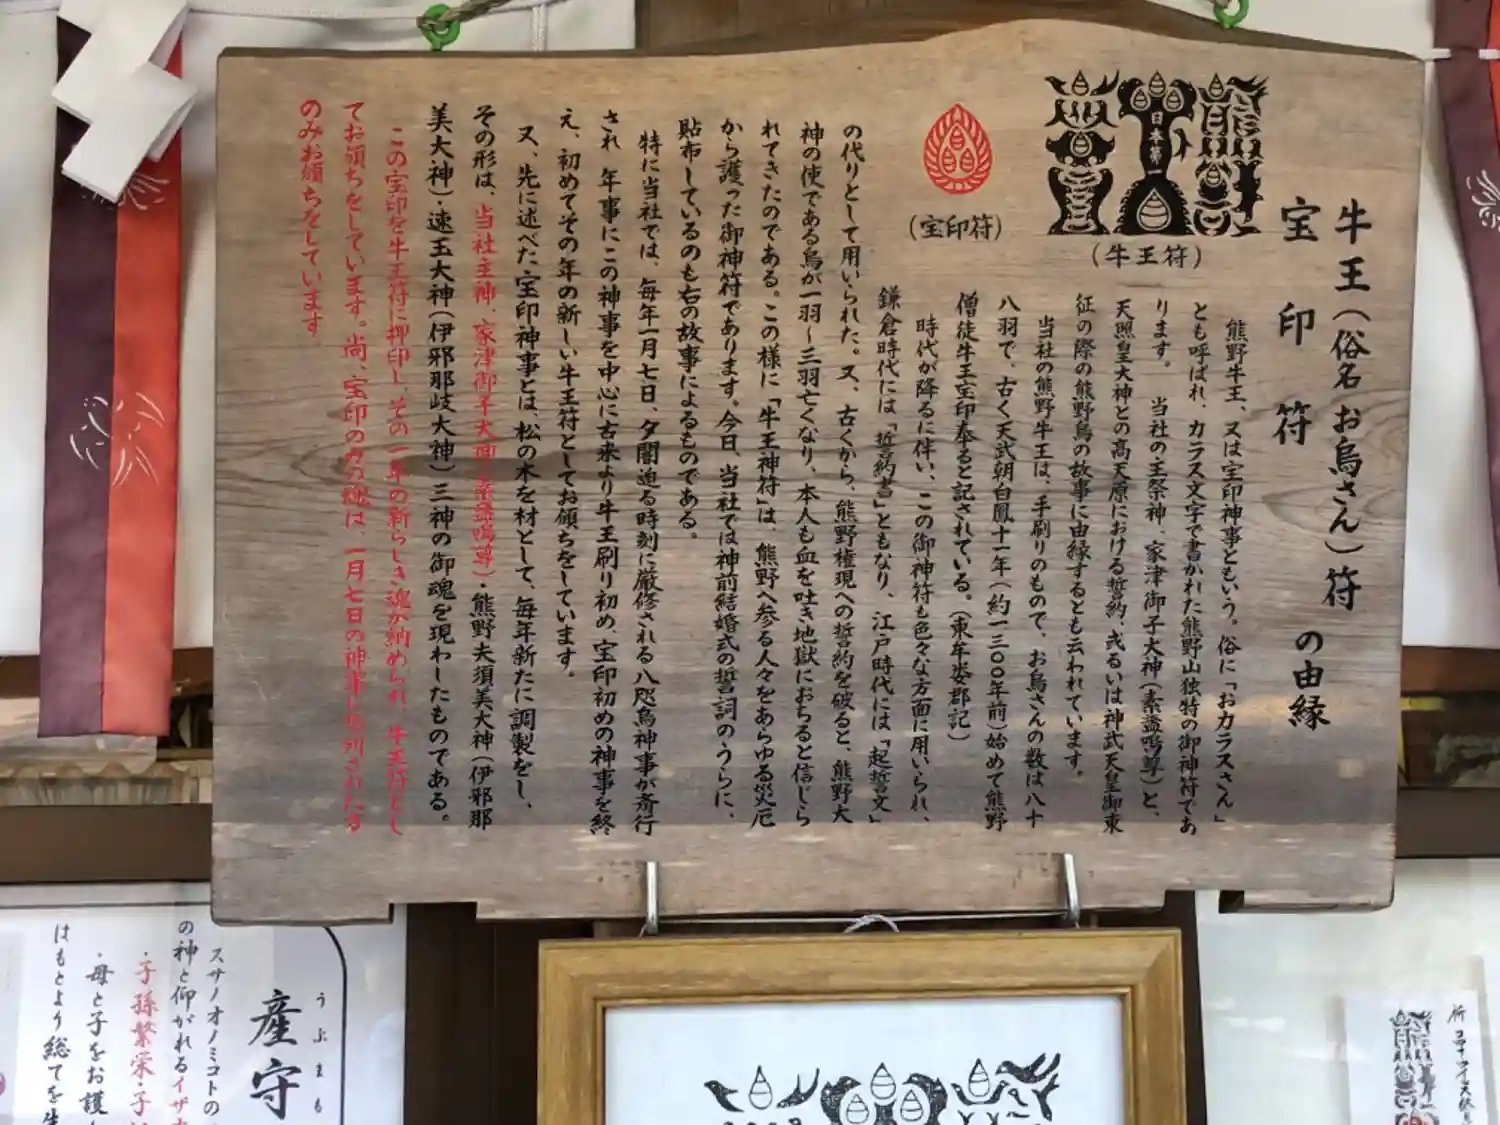 牛王(俗名お烏さん)符
宝印符
の由縁
(牛王符)
(宝印符)
日本第一
熊野牛王、又は宝印神事ともいう。俗に「おカラスさん」
とも呼ばれ、カラス文字で書かれた熊野山独特の御神符であ
ります。 当社の主祭神、家津御子大神(素盞嗚尊)と、
天照皇大神との高天原における誓約、或るいは神武天皇御東
征の際の熊野烏の故事に由縁するとも云われています。
当社の熊野牛王は、手刷りのもので、お烏さんの数は八十
八羽で、古く天武朝白鳳十一年(約一三〇〇年前)始めて熊野
僧徒牛王宝印奉ると記されている。(東牟婁郡記)
時代が降るに伴い、この御神符も色々な方面に用いられ、
鎌倉時代には「誓約書」ともなり、江戸時代には「起誓文」
の代りとして用いられた。又、古くから、熊野権現への誓約を破ると、熊野大
神の使である烏が一羽〜三羽亡くなり、本人も血を吐き地獄におちると信じら
れてきたのである。この様に「牛王神符」は、熊野へ参る人々をあらゆる災厄
から護った御神符であります。今日、当社では神前結婚式の誓詞のうらに、
貼布しているのも右の故事によるものである。
特に当社では、毎年一月七日、夕闇迫る時刻に厳修される八咫烏神事が斎行
され 年事にこの神事を中心に古来より牛王刷り初め、宝印初めの神事を終
え、初めてその年の新しい牛王符としてお頒ちをしています。
又、先に述べた宝印神事とは、松の木を材として、毎年新たに調製をし、
その形は、当社主神、家津御子大神(素盞嗚尊)・熊野夫須美大神(伊邪那
美大神)・速玉大神(伊邪那岐大神)三神の御魂を現わしたものである。
この宝印を牛王符に押印し、その一年の新らしき魂が納められ、牛王符とし
てお頒ちをしています。尚、宝印のみの符は、一月七日の神事に参列された方
のみお頒ちをしています
産守
うぶまもる
スサノオノミコトの
の神と仰がれるイザ
・子孫繁栄・子
・母と子をお護
はもとより総てを生